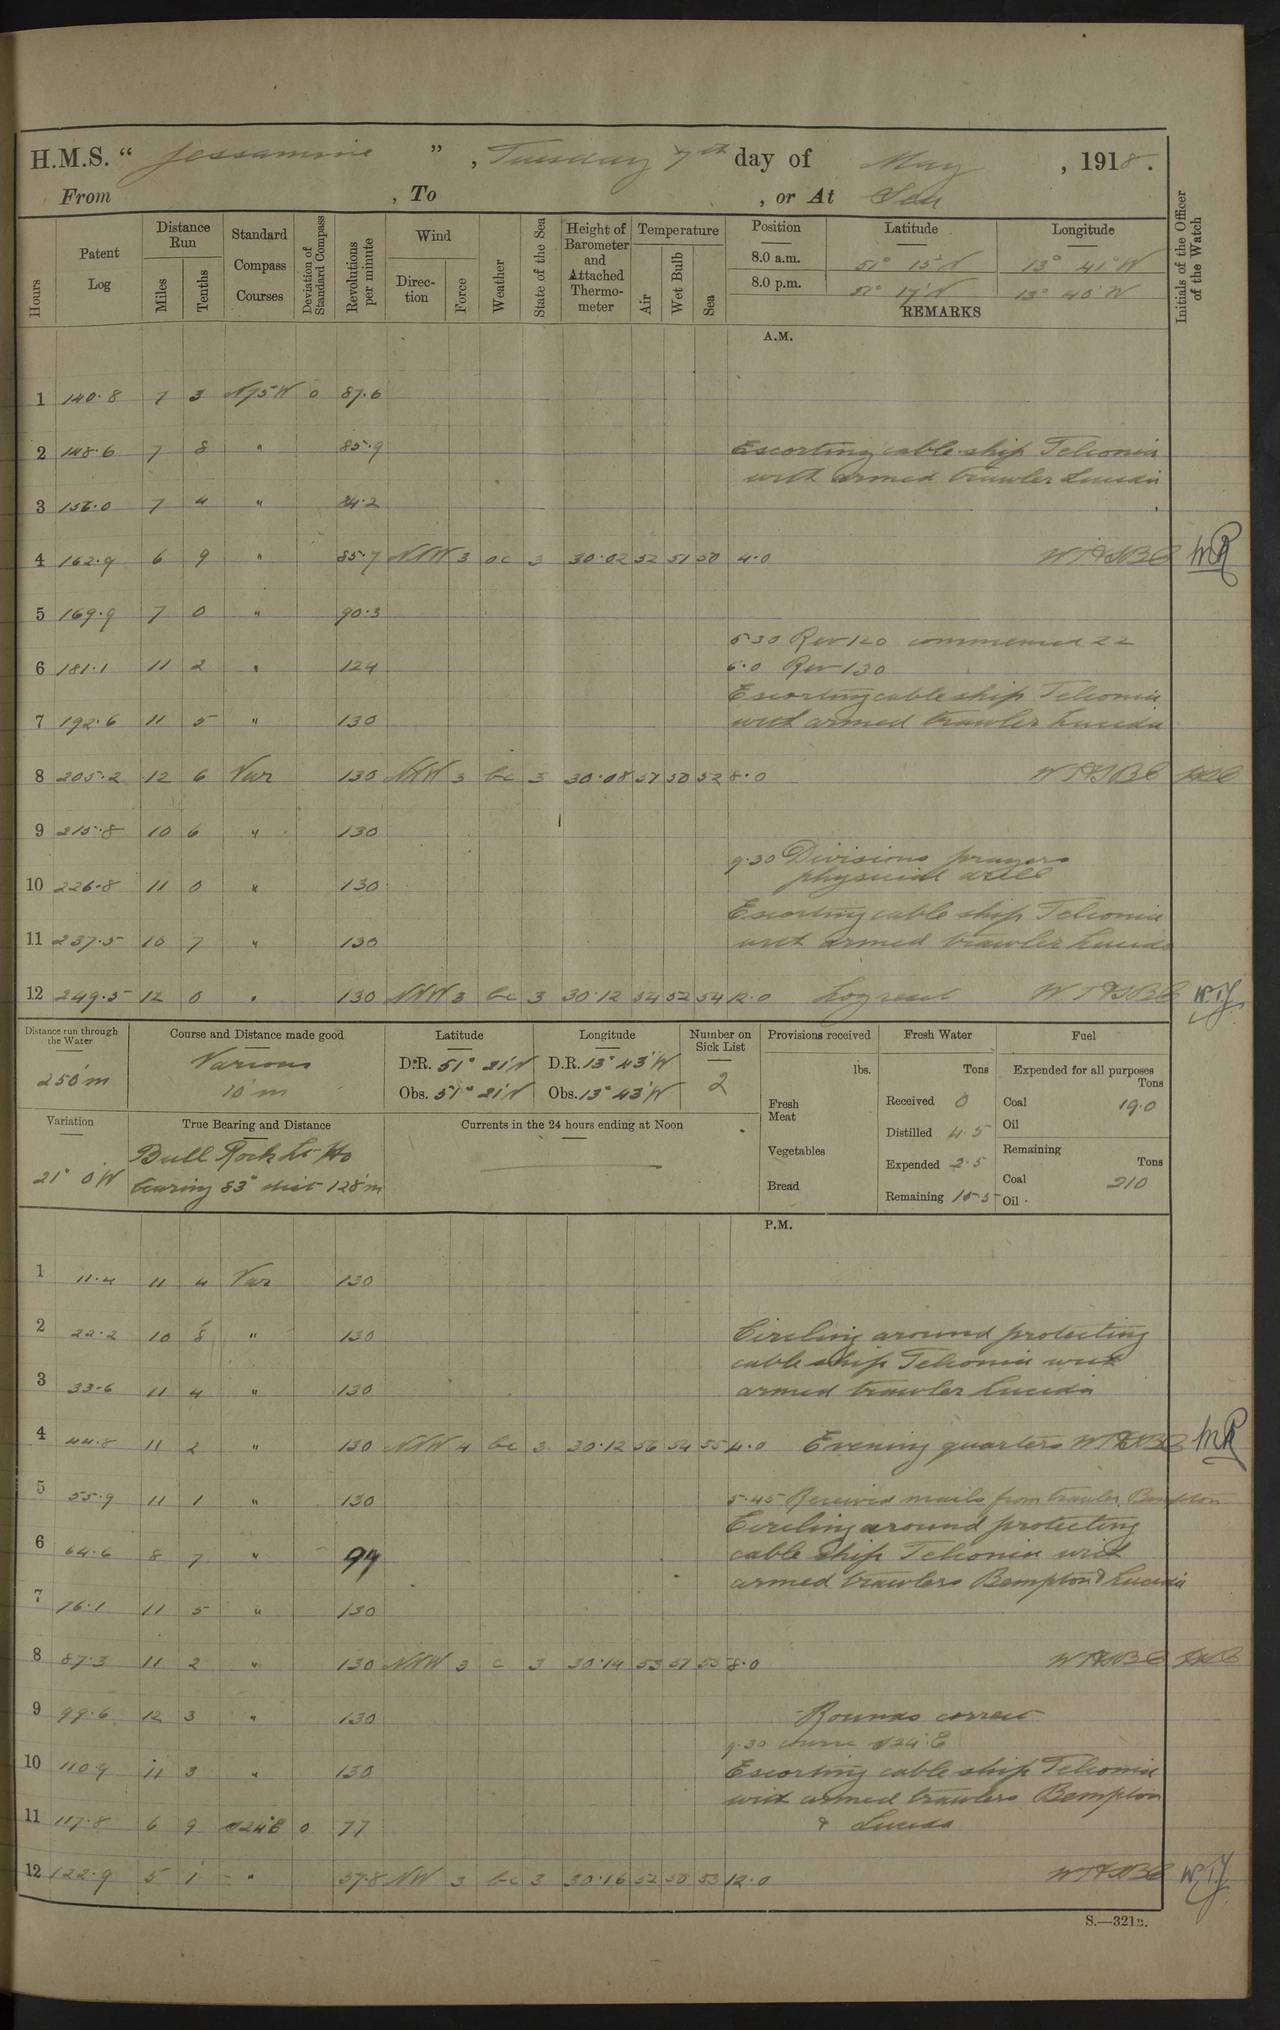 H.M.S. “ Jessamine ” , Tuesday 7th day of May , 1918.
From , To , or At Sea
Hours
Patent Log
Distance Run
Miles
Tenths
Standard Compass Courses
Deviation of Standard Compass
Revolutions per minute
Wind
Direction
Force
Weather
State of the Sea
Height of Barometer and Attached Thermometer
Temperature
Air
Wet Bulb
Sea
Position Latitude Longitude
8.0 a.m. 51° 15' N 13° 41' W
8.0 p.m. 51° 17' N 13° 40' W
REMARKS
Initials of the Officer of the Watch
A.M.
1 140.8 7 3 N75W 0 87.6
2 148.6 7 8 " 85.9 Escorting cable ship Telconia
with armed trawler Lucida
3 156.0 7 4 " 84.2
4 162.9 6 9 " 85.7 NNW 3 oc 3 30.02 52 51 50 4.0
5 169.9 7 0 " 90.3
5.30 Rev 120 commenced ZZ
6 181.1 11 2 " 124 6.0 Rev 130
Escorting cable ship Telconia
7 192.6 11 5 " 130 with armed trawler Lucida
8 205.2 12 6 Var 130 NNW 3 bc 3 30.08 51 50 52 8.0
9 215.8 10 6 " 130
9.30 Divisions prayers
10 226.8 11 0 " 130 physical drill
Escorting cable ship Telconia
11 237.5 10 7 " 130 with armed trawler Lucida
12 249.5 12 0 " 130 NNW 3 bc 3 30.12 54 52 54 12.0 Log reset W.T.J.
Distance run through the Water
250'm
Course and Distance made good
Various
10'm
Latitude
D.R. 51° 21' N
Obs. 51° 21' N
Longitude
D.R. 13° 43' W
Obs. 13° 43' W
Number on Sick List
2
Provisions received
lbs.
Fresh Meat
Vegetables
Bread
Fresh Water
Tons
Received 0
Distilled 4.5
Expended 2.5
Remaining 15.5
Fuel
Expended for all purposes
Tons
Coal 19.0
Oil
Remaining
Tons
Coal 210
Oil
Variation
21° 0' W
True Bearing and Distance
Bull Rock Lt Ho
bearing 83° dist 128'm
Currents in the 24 hours ending at Noon
P.M.
1 11.4 11 4 Var 130
2 22.2 10 8 " 130 Circling around protecting
cable ship Telconia with
3 33.6 11 4 " 130 armed trawler Lucida
4 44.8 11 2 " 130 NNW 4 bc 3 30.12 56 54 55 4.0 Evening quarters
5 55.9 11 1 " 130 5.45 Received mails from trawler Bempton
Circling around protecting
6 64.6 8 7 " 99 cable ship Telconia with
armed trawlers Bempton & Lucida
7 76.1 11 5 " 130
8 87.3 11 2 " 130 NNW 3 c 3 30.14 53 51 53 8.0
9 99.6 12 3 " 130 Rounds correct
9.30 course N24°E
10 110.9 11 3 " 130 Escorting cable ship Telconia
with armed trawlers Bempton
11 117.8 6 9 N24°E 0 77 & Lucida
12 122.9 5 1 " 57.8 NW 3 bc 3 30.16 52 50 53 12.0 W.T.J.
S.—321B.